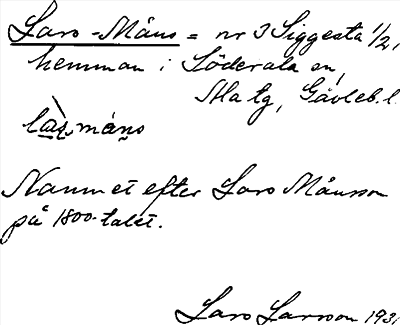 Lars-Måns = nr 3 Siggesta 1/2,
hemman i Söderala sn,
Ala tg, Gävleb. l.
làsmáns
Namnet efter Lars Månsson
på 1800-talet.
Lars Larsson 1931